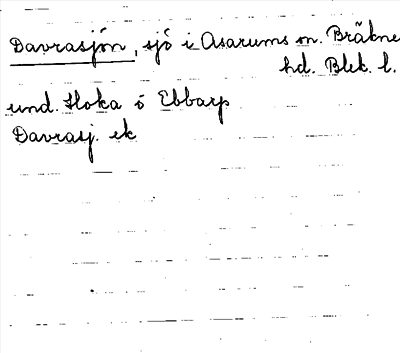 Davrasjön, sjö i Asarums sn. Bräkne
hd. Blek. l.
und. Hoka ö Ebbarp
Davrasj. ek